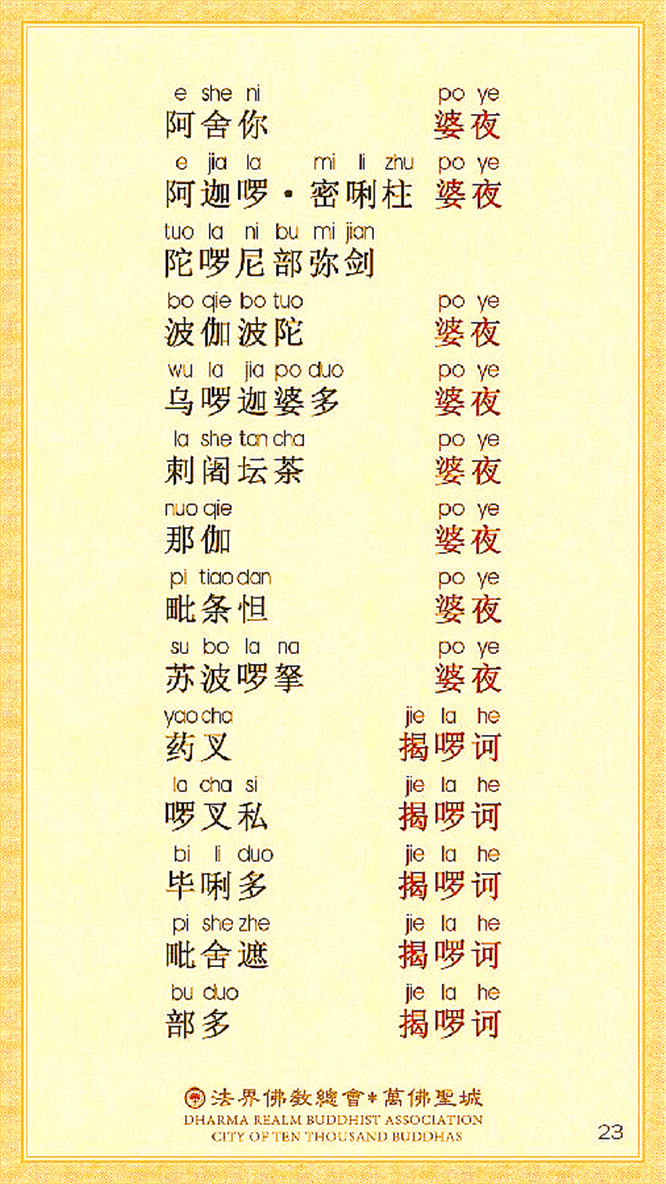 e she ni po ye
阿舍你 婆夜
e jia la mi li zhu po ye
阿迦啰·密唎柱 婆夜
tuo la ni bu mi jian
陀啰尼部弥剑
bo qie bo tuo po ye
波伽波陀 婆夜
wu la jia po duo po ye
乌啰迦婆多 婆夜
la she tan cha po ye
剌阇坛茶 婆夜
nuo qie po ye
那伽 婆夜
pi tiao dan po ye
毗条怛 婆夜
su bo la na po ye
苏波啰拏 婆夜
yao cha jie la he
药叉 揭啰诃
la cha si jie la he
啰叉私 揭啰诃
bi li duo jie la he
毕唎多 揭啰诃
pi she zhe jie la he
毗舍遮 揭啰诃
bu duo jie la he
部多 揭啰诃
法界佛教總會*萬佛聖城
DHARMA REALM BUDDHIST ASSOCIATION
CITY OF TEN THOUSAND BUDDHAS
23